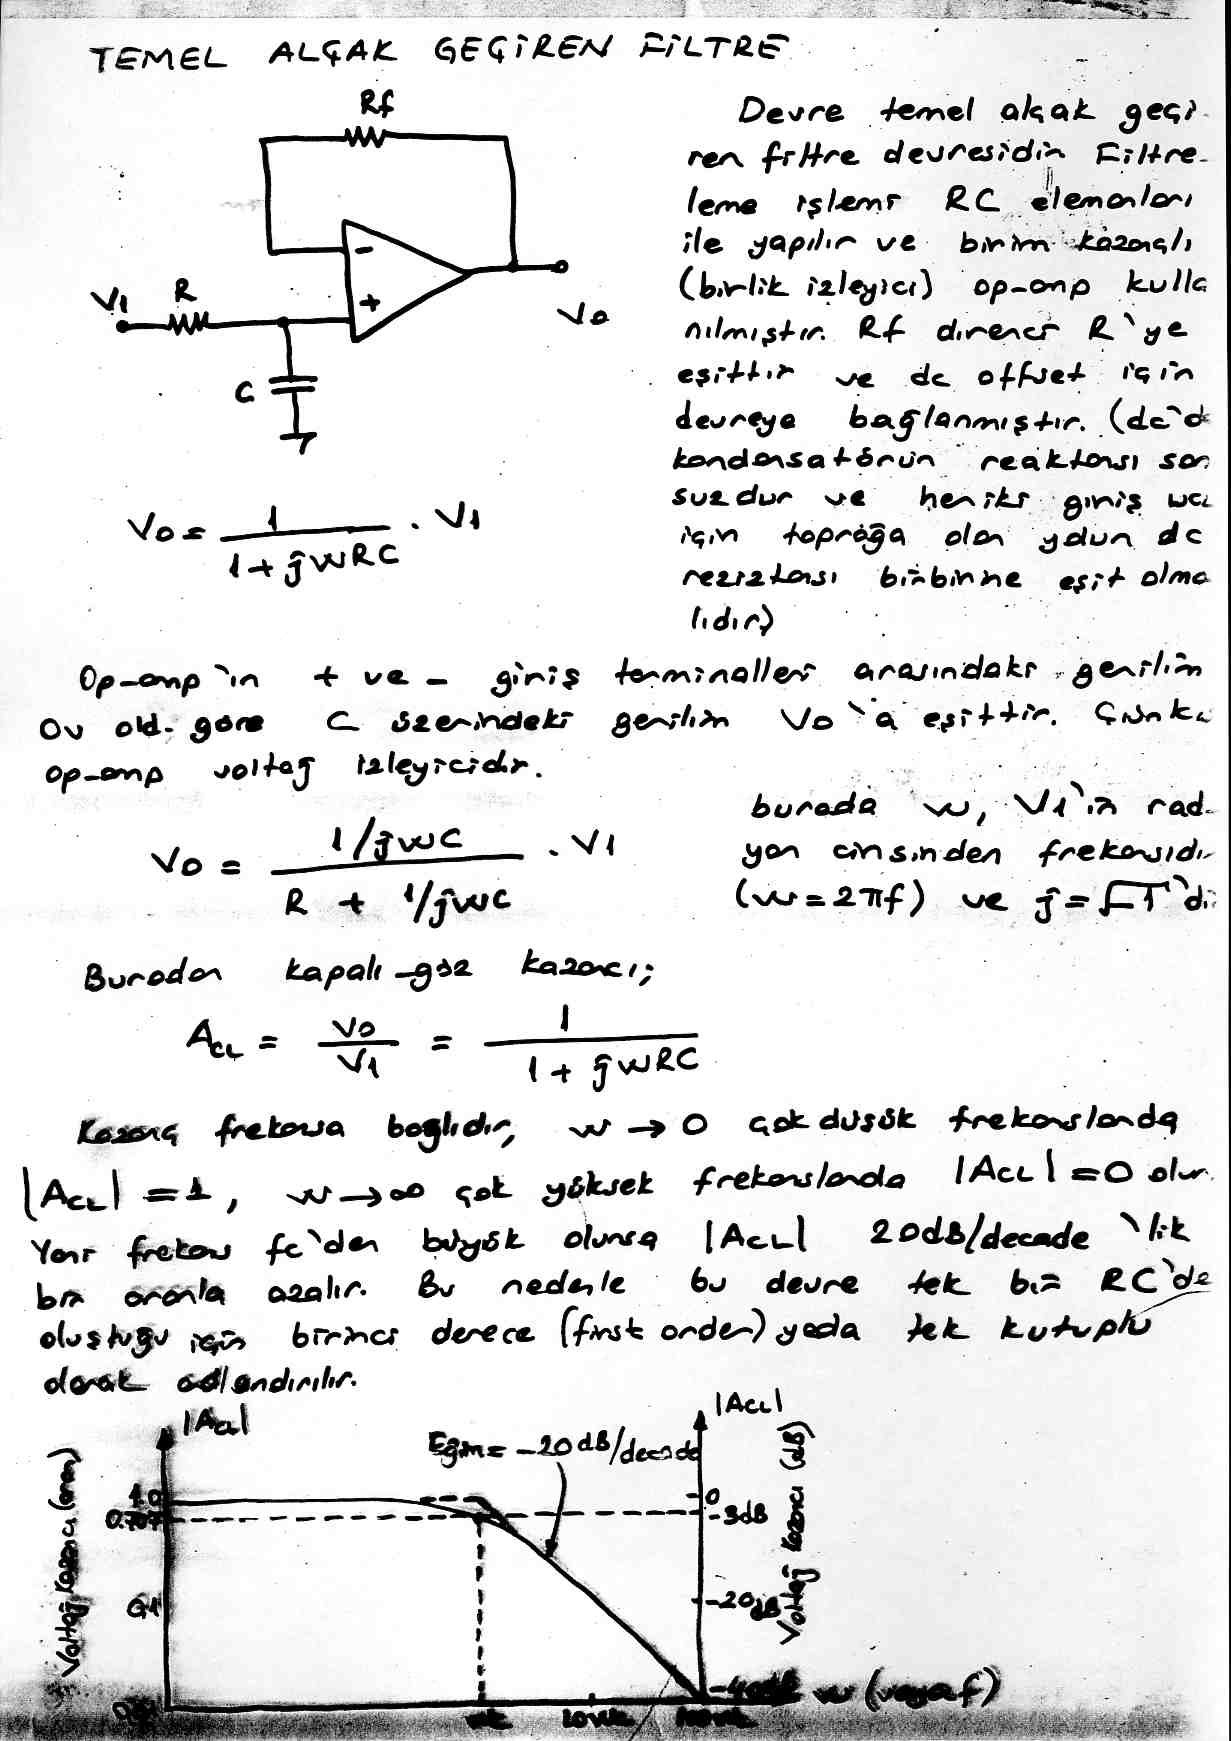 TEMEL ALÇAK GEÇİREN FİLTRE
Rf
V1
R
C
Vo
-
+
Devre temel alçak geçi-
ren filtre devresidir. Filtre-
leme işlemi RC elemanları
ile yapılır ve birim kazançlı
(birlik izleyici) op-amp kulla
nılmıştır. Rf direnci R'ye
eşittir ve dc offset için
devreye bağlanmıştır. (dc'd
kondansatörün reaktansı son
suzdur ve her iki giriş ucu
için toprağa olan yolun dc
rezistansı birbirine eşit olma
lıdır)
Vo = 1 / (1 + jwRC) . V1
Op-amp'ın + ve - giriş terminalleri arasındaki gerilim
0v old. göre C üzerindeki gerilim Vo'a eşittir. Çünkü
op-amp voltaj izleyicidir.
Vo = (1/jwC) / (R + 1/jwC) . V1
burada w, V1'in rad-
yan cinsinden frekansıdır
(w = 2πf) ve j = √-1'dir
Buradan kapalı-göz kazancı;
ACL = Vo/V1 = 1 / (1 + jwRC)
Kazanç frekansa bağlıdır, w → 0 çok düşük frekanslarda
|ACL| = 1, w → ∞ çok yüksek frekanslarda |ACL| = 0 olur.
Yani frekans fc'den büyük olunca |ACL| 20dB/decade'lik
bir oranla azalır. Bu nedenle bu devre tek bir RC'de
oluştuğu için birinci derece (first order) yada tek kutuplu
olarak adlandırılır.
|ACL|
|ACL|
Eğim = -20 dB/decade
Voltaj kazancı (oran)
1.0
0.707
0.1
0
-3dB
-20dB
-40dB
Voltaj kazancı (dB)
wc
10wc
100wc
w (veya f)